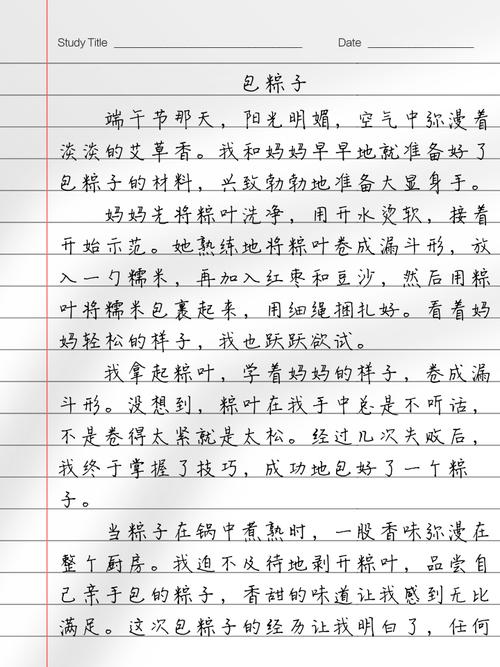 Study Title
Date
包粽子
端午节那天，阳光明媚，空气中弥漫着
淡淡的艾草香。我和妈妈早早地就准备好了
包粽子的材料，兴致勃勃地准备大显身手。
妈妈先将粽叶洗净，用开水烫软，接着
开始示范。她熟练地将粽叶卷成漏斗形，放
入一勺糯米，再加入红枣和豆沙，然后用粽
叶将糯米包裹起来，用细绳捆扎好。看着妈
妈轻松的样子，我也跃跃欲试。
我拿起粽叶，学着妈妈的样子，卷成漏
斗形。没想到，粽叶在我手中总是不听话，
不是卷得太紧就是太松。经过几次失败后，
我终于掌握了技巧，成功地包好了一个粽
子。
当粽子在锅中煮熟时，一股香味弥漫在
整个厨房。我迫不及待地剥开粽叶，品尝自
己亲手包的粽子，香甜的味道让我感到无比
满足。这次包粽子的经历让我明白了，任何